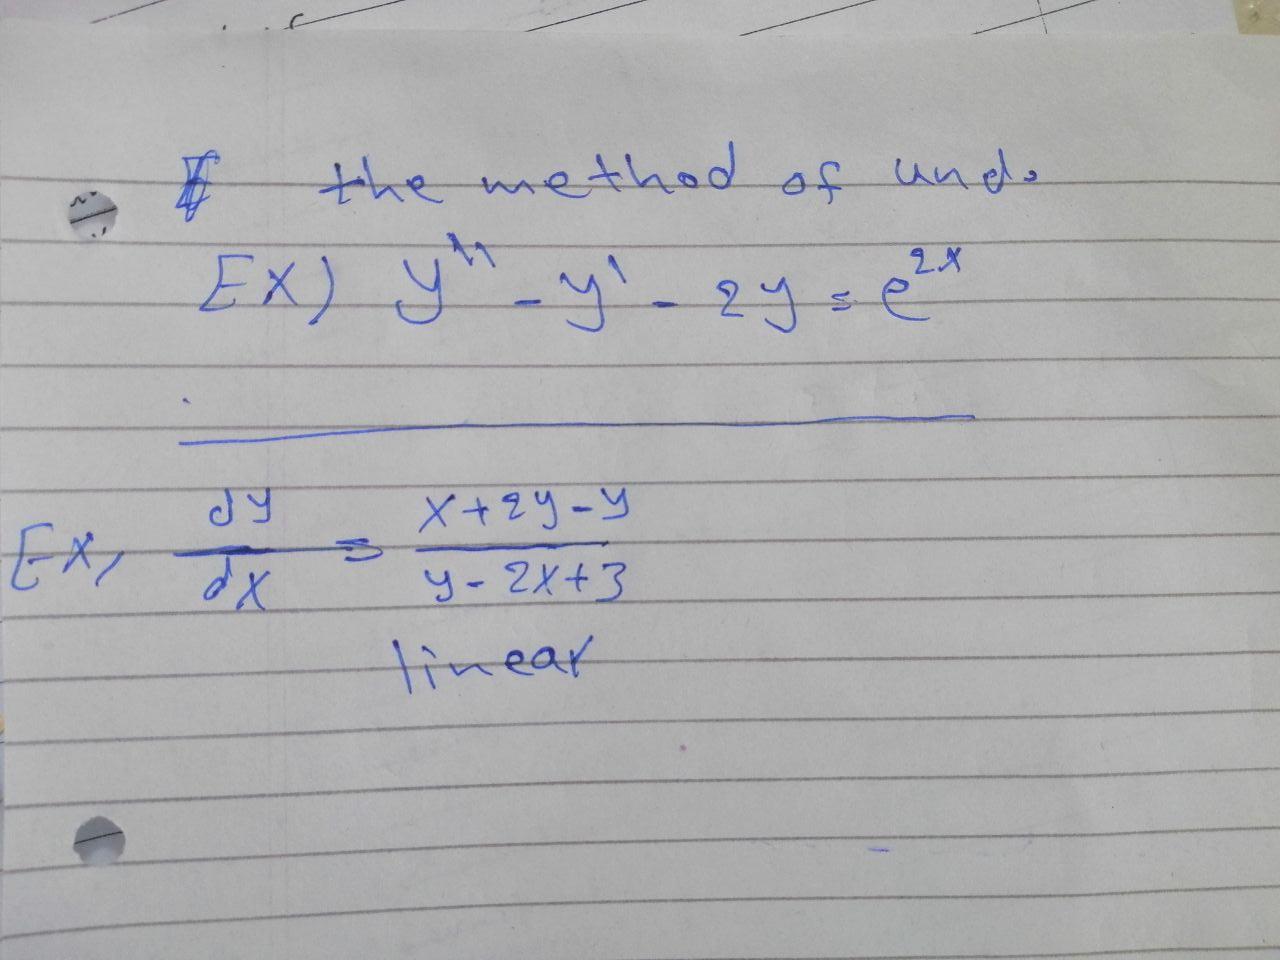 the method of und.
Ex) y'' - y' - 2y = e^2x
Ex, dy/dx = x+2y-y / y-2x+3
linear